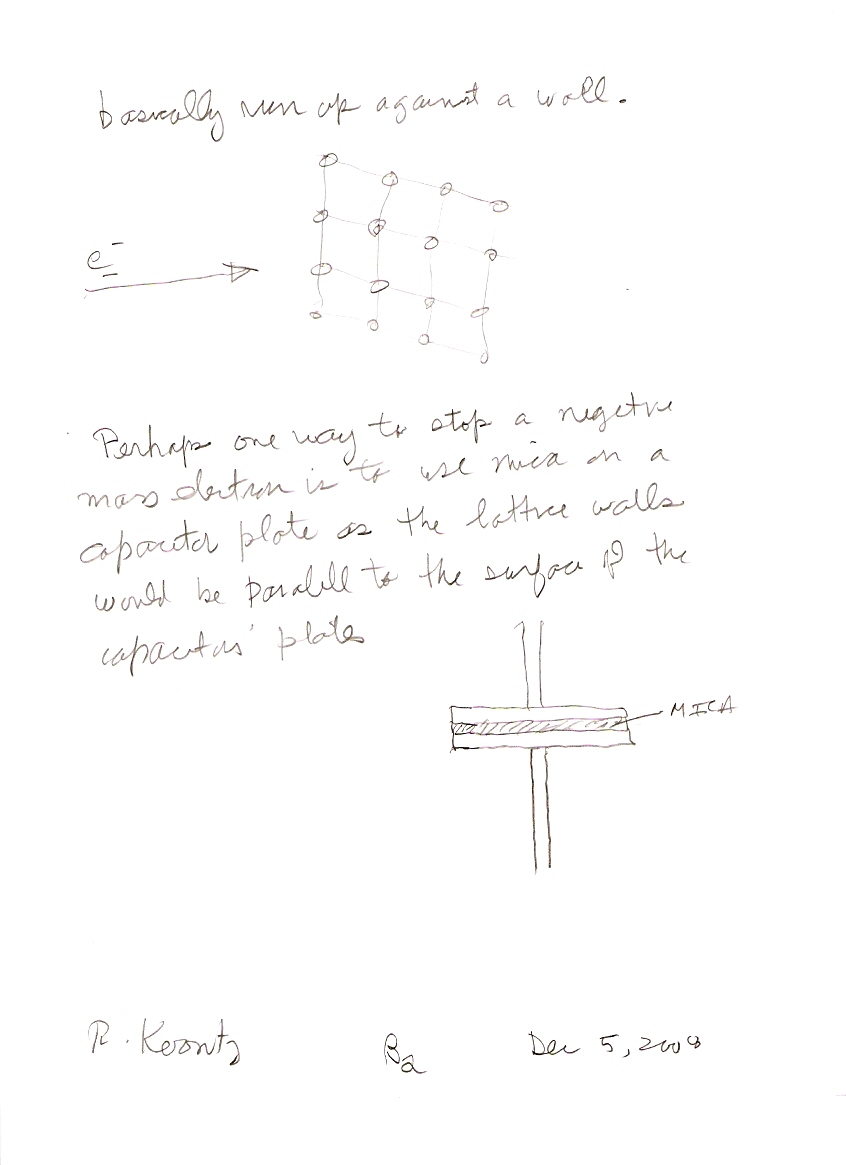 basically run up against a wall.
e⁻
Perhaps one way to stop a negetve
mass electron is to use mica on a
capacitor plate as the lattice walls
would be parallell to the surface of the
capacitors' plates
MICA
R. Koontz
Dec 5, 2008